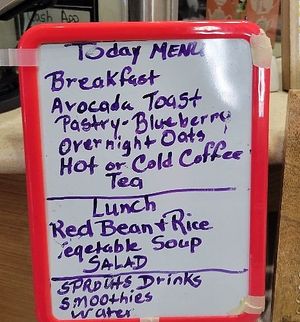 Cash App
Today MENU
Breakfast
Avocada Toast
Pastry-Blueberry
Overnight Oats
Hot or Cold Coffee
Tea
Lunch
Red Bean + Rice
Vegetable Soup
SALAD
SPROUTS Drinks
Smoothies
Water